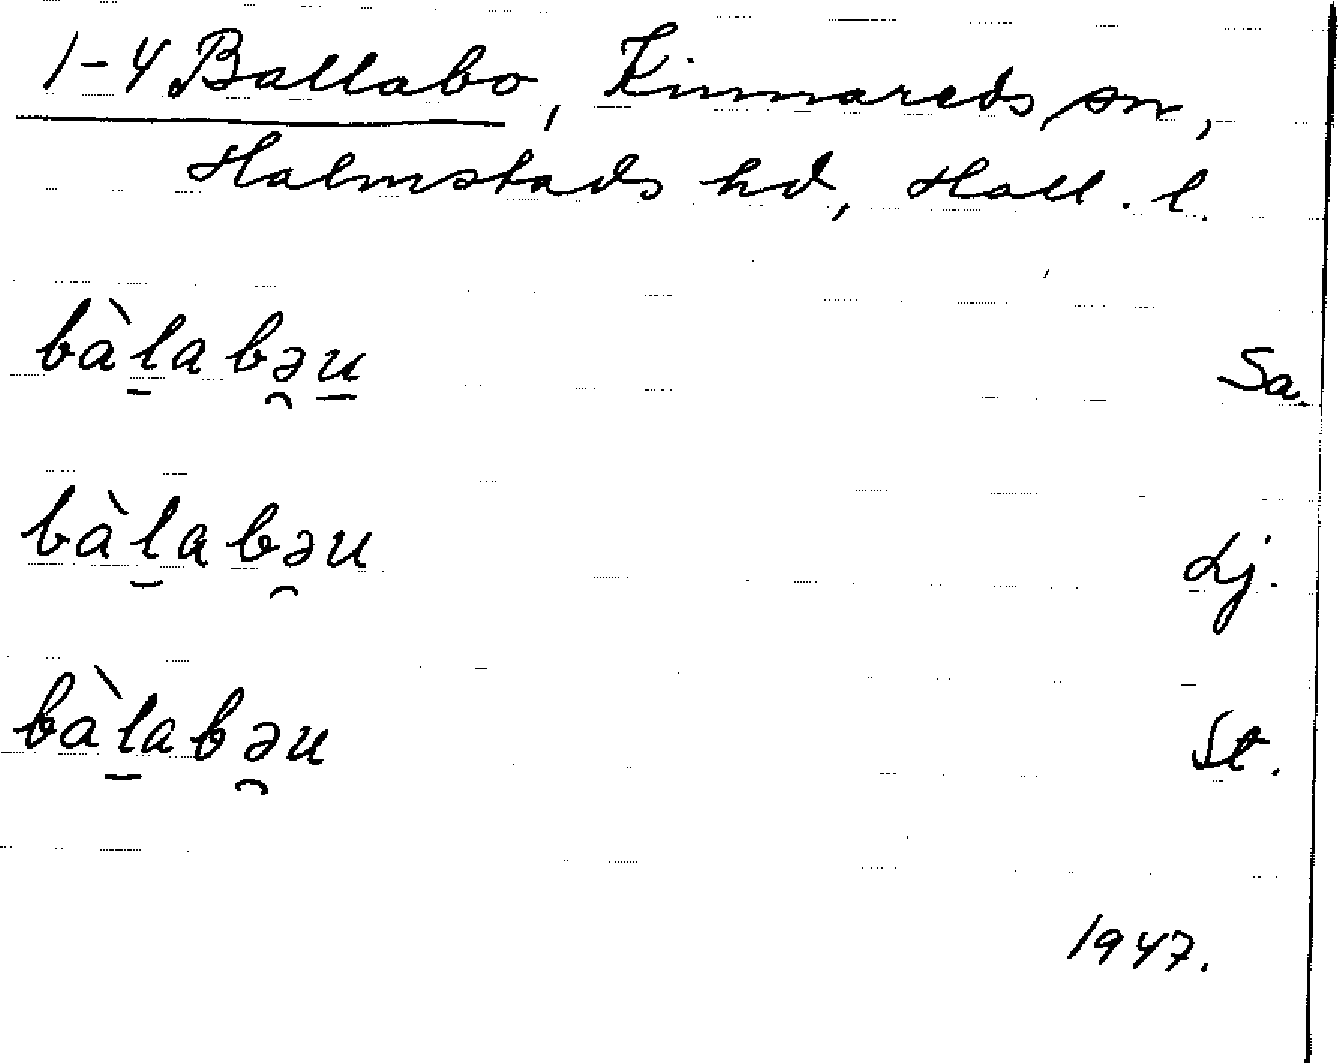 1-4 Ballabo, Kinnareds sn,
Halmstads hd, Hall. l.
bàl̠abə̯u̠ Sa.
bàl̠abə̯u Lj.
bàl̠abə̯u St.
1947.